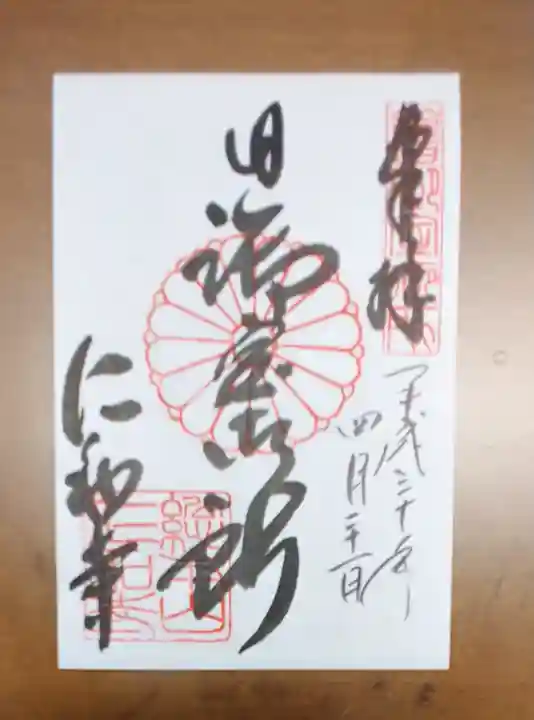 奉拝
平成三十年
四月二十一日
旧御室御所
仁和寺